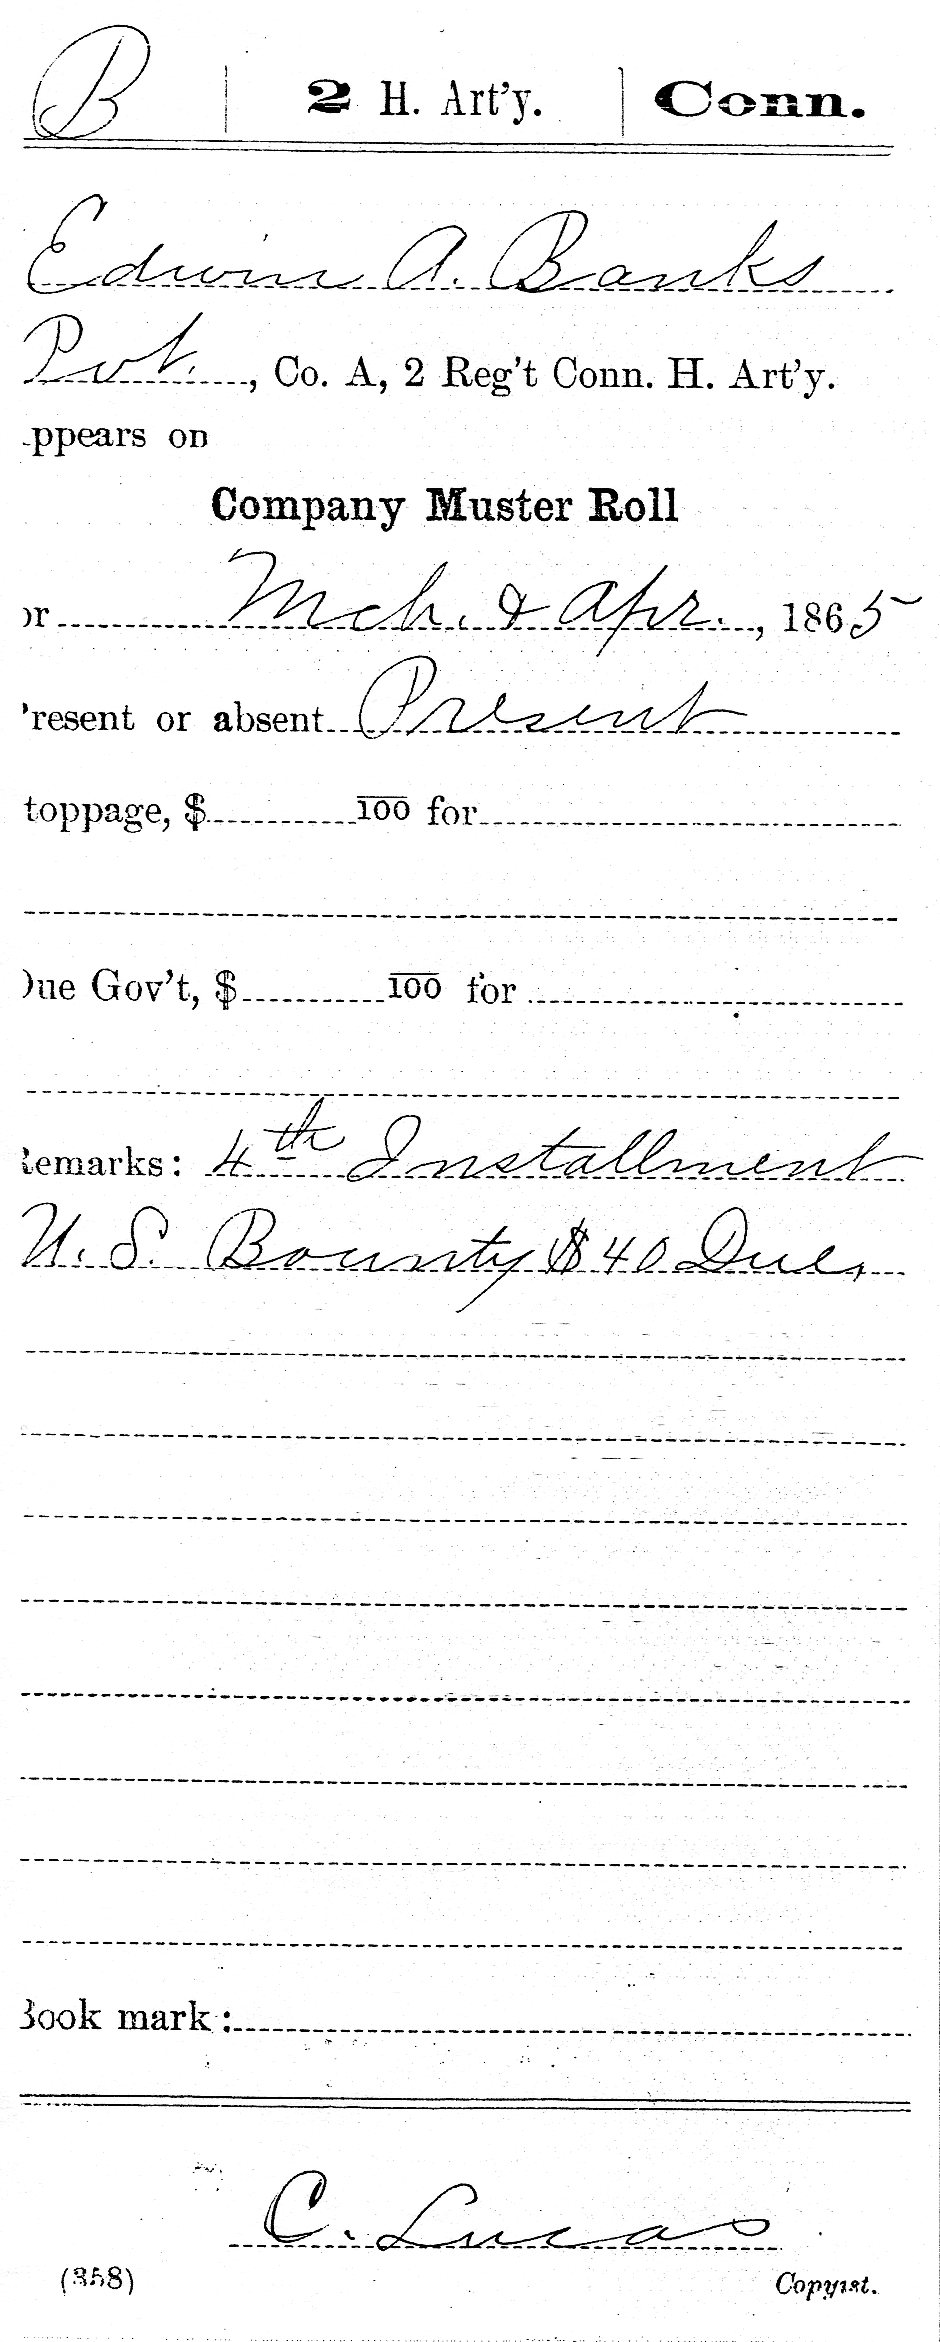 B | 2 H. Art'y. | Conn.
Edwin A. Banks
Pvt., Co. A, 2 Reg't Conn. H. Art'y.
ppears on
Company Muster Roll
or Mch. & Apr., 1865
resent or absent Present
toppage, $ 100 for
Due Gov't, $ 100 for
Remarks: 4th Installment
U. S. Bounty $40 Due,
Book mark:
C. Lucas
(358) Copyist.